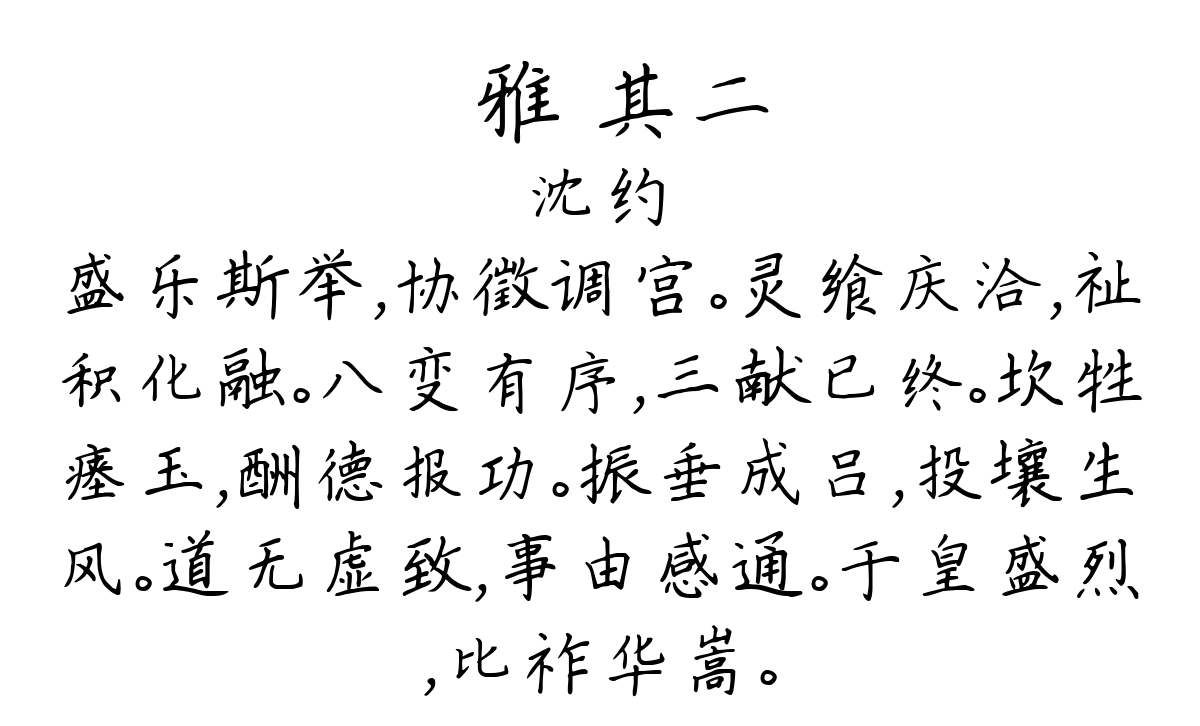 雅 其二
沈约
盛乐斯举,协徵调宫。灵飨庆洽,祉
积化融。八变有序,三献已终。坎牲
瘗玉,酬德报功。振垂成吕,投壤生
风。道无虚致,事由感通。于皇盛烈
,比祚华嵩。